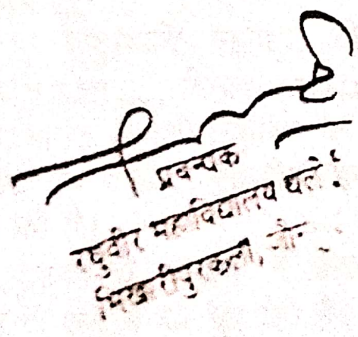 प्रबन्धक
रघुवीर महाविद्यालय थलो
भिखारीपुरकला,